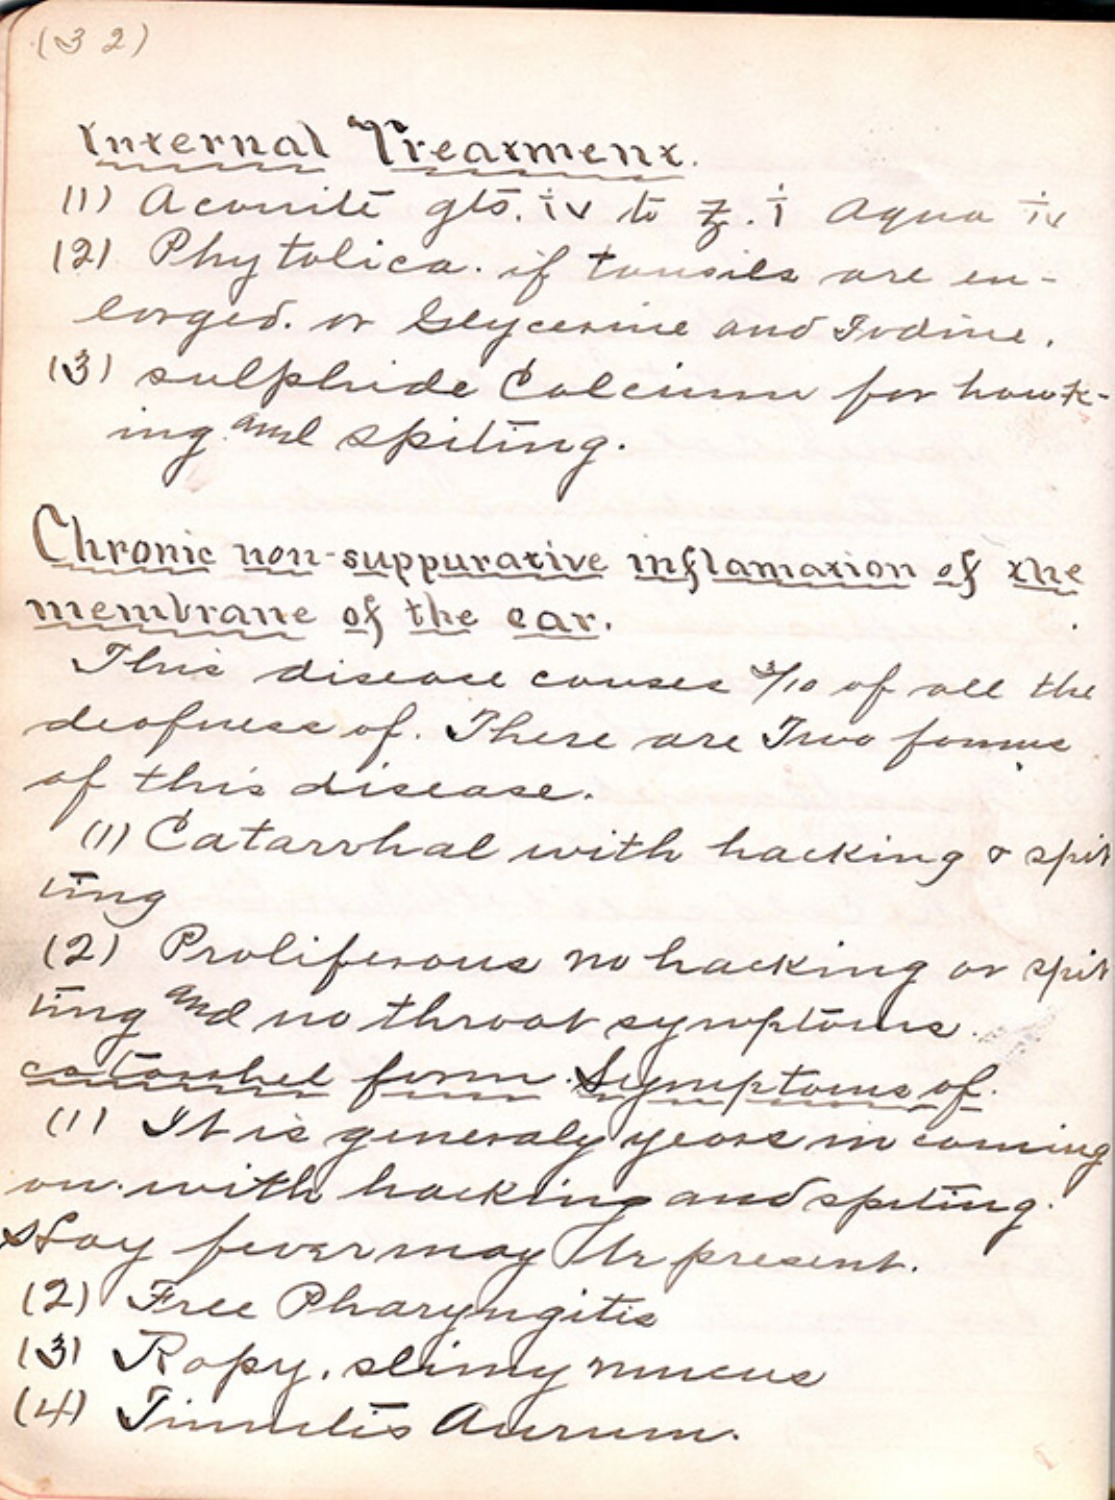 (32)
Internal Treatment.
(1) Aconite gts. iv to ʒ. i Aqua iv
(2) Phytolica. if tonsils are en-
larged. or Glycerine and Iodine.
(3) sulphide Calcium for hawk-
ing and spiting.
Chronic non-suppurative inflamation of the
membrane of the ear.
This disease causes 3/10 of all the
deafness of. There are Two forms
of this disease.
(1) Catarrhal with hacking & spit
ting
(2) Proliferous no hacking or spit
ting and no throat symptoms.
catarrhel form. Symptoms of.
(1) It is generaly years in coming
on. with hacking and spiting.
Hay fever may be present.
(2) Free Pharyngitis
(3) Ropy, slimy mucus
(4) Tinnitis Aurum.